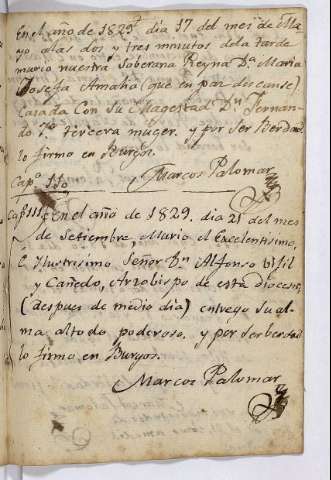 En el año de 1829, dia 17 del mes de Ma
yo alas dos y tres minutos dela tarde
murio nuestra Soberana Reyna Dª Maria
Josefa Amalia (que en paz descanse)
Casada Con Su Magestad Dn Fernan
do 7º tercera muger. y por ser Berdad
lo firmo en Burgos.
Capº 110
Marcos Palomar
Capº 111. En el año de 1829. dia 21 del mes
de Setiembre, Murio el Excelentisimo,
E Ylustrisimo Señor Dn Alfonso
y Cañedo, Arzobispo de esta diocesis,
(despues de medio dia) entrego su al
ma al todo poderoso, y por ser berdad
lo firmo en Burgos.
Marcos Palomar